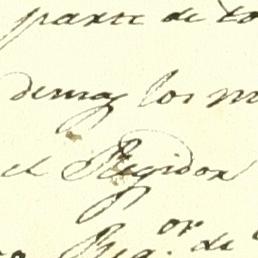 parte de to
demas los m
el Regidor
Rig.or de